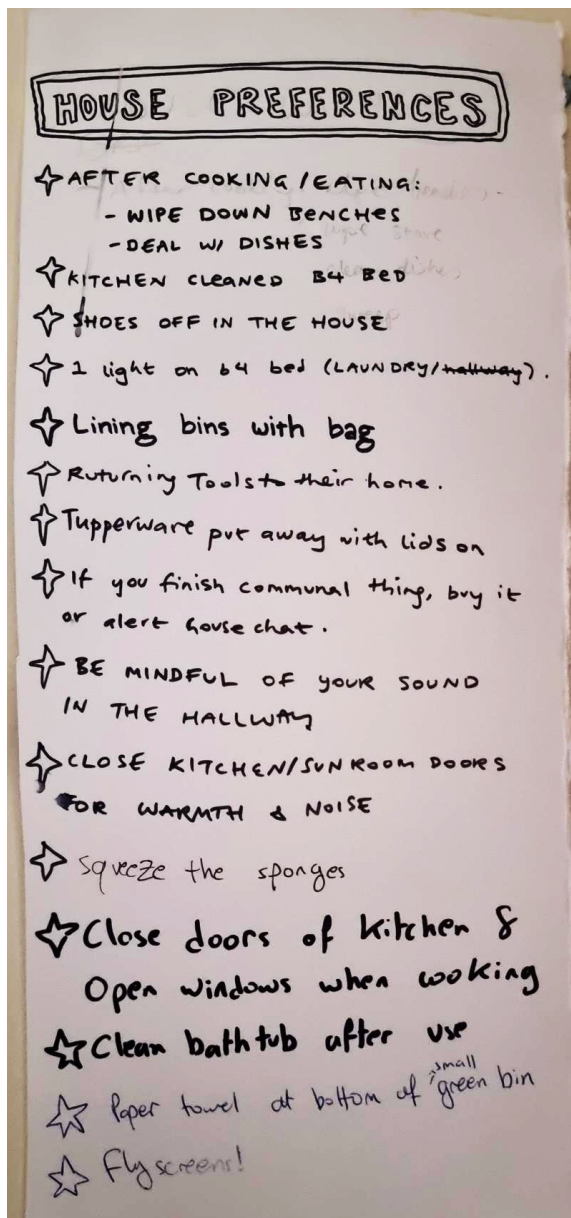 HOUSE PREFERENCES
AFTER COOKING/EATING:
- WIPE DOWN BENCHES
- DEAL W/ DISHES
KITCHEN CLEANED B4 BED
SHOES OFF IN THE HOUSE
1 light on b4 bed (LAUNDRY/hallway).
Lining bins with bag
Ruturning Tools to their home.
Tupperware put away with lids on
If you finish communal thing, buy it
or alert house chat.
BE MINDFUL OF YOUR SOUND
IN THE HALLWAY
CLOSE KITCHEN/SUNROOM DOORS
FOR WARMTH & NOISE
Squeeze the sponges
Close doors of kitchen &
Open windows when cooking
Clean bathtub after use
Paper towel at bottom of small green bin
Flyscreens!